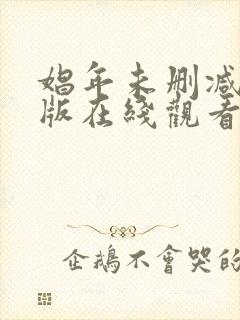 娼年未删减
版在綫觀看
企鵝不會哭的